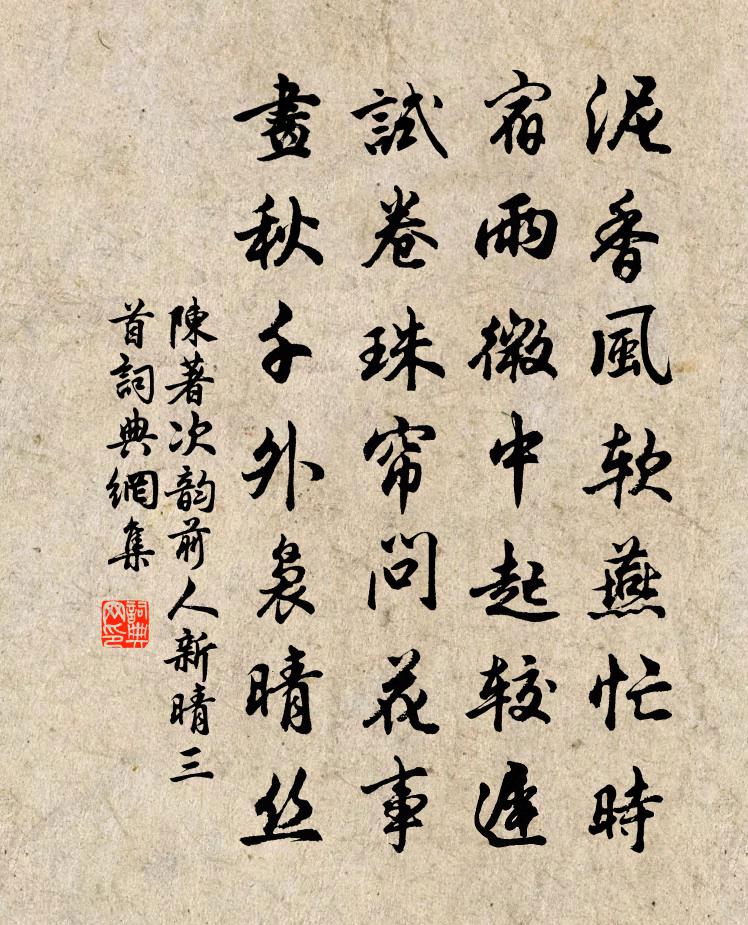 泥香風软燕忙時
宿雨微中起较遲
試卷珠帘問花事
畫秋千外裊晴丝
陳著次韵前人新晴三
首詞典網集
詞典
网印